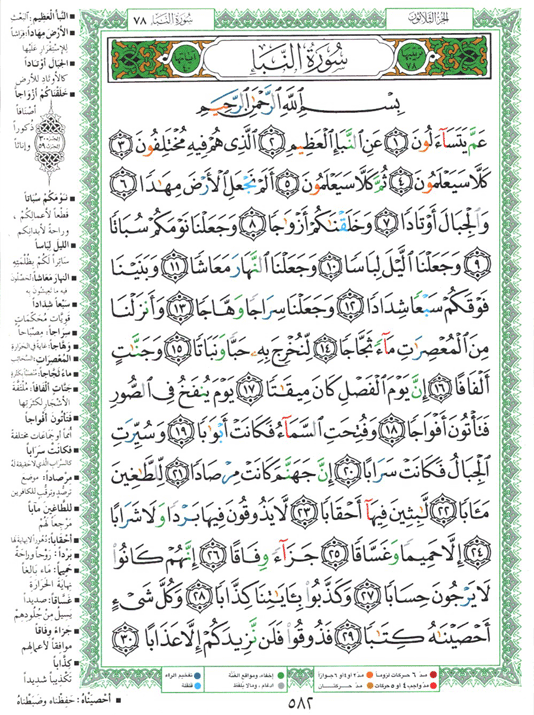 الجزء الثلاثون
سورة النبأ ٧٨
سورة النبإ
٧٨
بسم الله الرحمن الرحيم
عم يتساءلون ١ عن النبإ العظيم ٢ الذي هم فيه مختلفون ٣
كلا سيعلمون ٤ ثم كلا سيعلمون ٥ ألم نجعل الأرض مهادا ٦
والجبال أوتادا ٧ وخلقناكم أزواجا ٨ وجعلنا نومكم سباتا
٩ وجعلنا الليل لباسا ١٠ وجعلنا النهار معاشا ١١ وبنينا
فوقكم سبعا شدادا ١٢ وجعلنا سراجا وهاجا ١٣ وأنزلنا
من المعصرات ماء ثجاجا ١٤ لنخرج به حبا ونباتا ١٥ وجنات
ألفافا ١٦ إن يوم الفصل كان ميقاتا ١٧ يوم ينفخ في الصور
فتأتون أفواجا ١٨ وفتحت السماء فكانت أبوابا ١٩ وسيرت
الجبال فكانت سرابا ٢٠ إن جهنم كانت مرصادا ٢١ للطاغين
مآبا ٢٢ لابثين فيها أحقابا ٢٣ لا يذوقون فيها بردا ولا شرابا
٢٤ إلا حميما وغساقا ٢٥ جزاء وفاقا ٢٦ إنهم كانوا
لا يرجون حسابا ٢٧ وكذبوا بآياتنا كذابا ٢٨ وكل شيء
أحصيناه كتابا ٢٩ فذوقوا فلن نزيدكم إلا عذابا ٣٠
النبأ العظيم: البعث
الأرض مهادا: فراشا
للاستقرار عليها
الجبال أوتادا
كالأوتاد للأرض
خلقناكم أزواجا
أصنافا
ذكورا
وإناثا
نومكم سباتا
قطعا لأعمالكم
وراحة لأبدانكم
الليل لباسا
ساترا لكم بظلمته
النهار معاشا
سبعا شدادا
قويات محكمات
سراجا: مصباحا
وهاجا
المعصرات
ماء ثجاجا
جنات ألفافا: ملتفة
الأشجار لكثرتها
فتأتون أفواجا
أمما أو جماعات مختلفة
فكانت سرابا
مرصادا: موضع
ترصد وترقب للكافرين
للطاغين مآبا
مرجعا لهم
أحقابا
بردا: روحا وراحة
حميما: ماء بالغا
نهاية الحرارة
غساقا: صديدا
يسيل من جلودهم
جزاء وفاقا
موافقا لأعمالهم
كذابا
تكذيبا شديدا
أحصيناه: حفظناه وضبطناه
مد ٦ حركات لزوما
مد ٢ أو ٤ أو ٦ جوازا
إخفاء، ومواقع الغنة
تفخيم الراء
مد واجب ٤ أو ٥ حركات
مد حركتان
إدغام، وما لا يلفظ
قلقلة
٥٨٢